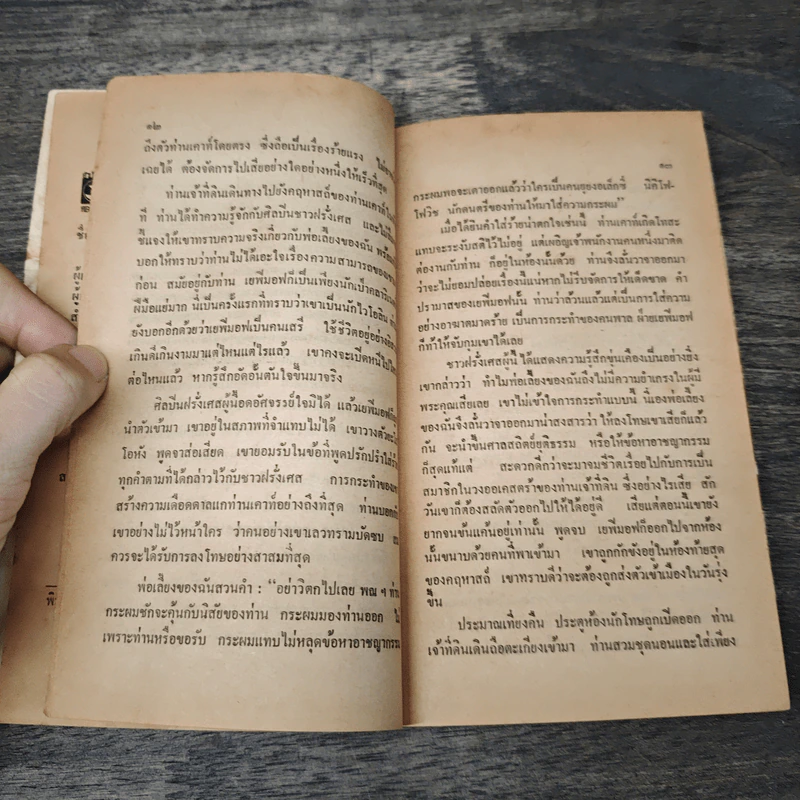 ๑๒
ถึงตัวท่านเคาท์โดยตรง ซึ่งถือเป็นเรื่องร้ายแรง
เฉยได้ ต้องจัดการไปเสียอย่างใดอย่างหนึ่งให้เร็วที่สุด
ท่านเจ้าที่ดินเดินทางไปยังคฤหาสถ์ของท่านเคาท์
ที ท่านได้ทำความรู้จักกับศิลปินชาวฝรั่งเศส
ชี้แจงให้เขาทราบความจริงเกี่ยวกับพ่อเลี้ยงของฉัน
บอกให้ทราบว่าท่านไม่ได้เอะใจเรื่องความสามารถของ
ก่อน สมัยอยู่กับท่าน เยฟีมอฟก็เป็นเพียงนัก
ฝีมือแย่มาก นี่เป็นครั้งแรกที่ทราบว่าเขาเป็นนักไวโอลิน
ยังบอกอีกด้วยว่าเยฟีมอฟเป็นคนเสรี ใช้ชีวิตอยู่อย่าง
เกินดีเกินงามมาแต่ไหนแต่ไรแล้ว เขาคงจะเปิดหนีไป
ต่อไหนแล้ว หากรู้สึกอัดอั้นตันใจขึ้นมาจริง
ศิลปินฝรั่งเศสผู้นี้อดอัศจรรย์ใจมิได้ แล้วเยฟีมอฟ
นำตัวเข้ามา เขาอยู่ในสภาพที่จำแทบไม่ได้ เขาวางตัว
โอหัง พูดจาส่อเสียด เขายอมรับในข้อที่พูดปรักปรำใส่ร้าย
ทุกคำตามที่ได้กล่าวไว้กับชาวฝรั่งเศส การกระทำของ
สร้างความเดือดดาลแก่ท่านเคาท์อย่างถึงที่สุด ท่านบอก
เขาอย่างไม่ไว้หน้าใคร ว่าคนอย่างเขาเลวทรามบัดซบ
ควรจะได้รับการลงโทษอย่างสาสมที่สุด
พ่อเลี้ยงของฉันสวนคำ : “อย่าวิตกไปเลย พณ ฯ ท่าน
กระผมชักจะคุ้นกับนิสัยของท่าน กระผมมองท่านออก
เพราะท่านหรือขอรับ กระผมแทบไม่หลุดข้อหาอาชญากรรม
๑๓
กระผมพอจะเดาออกแล้วว่าใครเป็นคนยุยงอเล็กซี่ นิคีโฟ-
โฟวิช นักดนตรีของท่านให้มาใส่ความกระผม”
เมื่อได้ยินคำใส่ร้ายน่าตกใจเช่นนี้ ท่านเคาท์เกิดโทสะ
แทบจะระงับสติไว้ไม่อยู่ แต่เผอิญเจ้าพนักงานคนหนึ่งมาติด
ต่องานกับท่าน ก็อยู่ในห้องนั้นด้วย ท่านจึงลั่นวาจาออกมา
ว่าจะไม่ยอมปล่อยเรื่องนี้แน่หากไม่รีบจัดการให้เด็ดขาด คำ
ปรามาสของเยฟีมอฟนั้น ท่านว่าล้วนแล้วแต่เป็นการใส่ความ
อย่างอาฆาตมาดร้าย เป็นการกระทำของคนพาล ฝ่ายเยฟีมอฟ
ก็ท้าให้จับกุมเขาได้เลย
ชาวฝรั่งเศสผู้นี้ ได้แสดงความรู้สึกขุ่นเคืองเป็นอย่างยิ่ง
เขากล่าวว่า ทำไมพ่อเลี้ยงของฉันถึงไม่มีความยำเกรงในผู้มี
พระคุณเสียเลย เขาไม่เข้าใจการกระทำแบบนี้ นี่เองพ่อเลี้ยง
ของฉันจึงลั่นวาจาออกมาน่าสงสารว่า ให้ลงโทษเขาเสียก็แล้ว
กัน จะนำขึ้นศาลสถิตย์ยุติธรรม หรือให้ข้อหาอาชญากรรม
ก็สุดแท้แต่ สะดวกดีกว่าจะมาจมชีวิตเรื่อยไปกับการเป็น
สมาชิกในวงออเคสตร้าของท่านเจ้าที่ดิน ซึ่งอย่างไรเสีย สัก
วันเขาก็ต้องสลัดตัวออกไปให้ได้อยู่ดี เสียแต่ตอนนี้เขายัง
ยากจนข้นแค้นอยู่เท่านั้น พูดจบ เยฟีมอฟก็ออกไปจากห้อง
นั้นขนาบด้วยคนที่พาเข้ามา เขาถูกกักขังอยู่ในห้องท้ายสุด
ของคฤหาสถ์ เขาทราบดีว่าจะต้องถูกส่งตัวเข้าเมืองในวันรุ่ง
ขึ้น
ประมาณเที่ยงคืน ประตูห้องนักโทษถูกเปิดออก ท่าน
เจ้าที่ดินเดินถือตะเกียงเข้ามา ท่านสวมชุดนอนและใส่เพียง